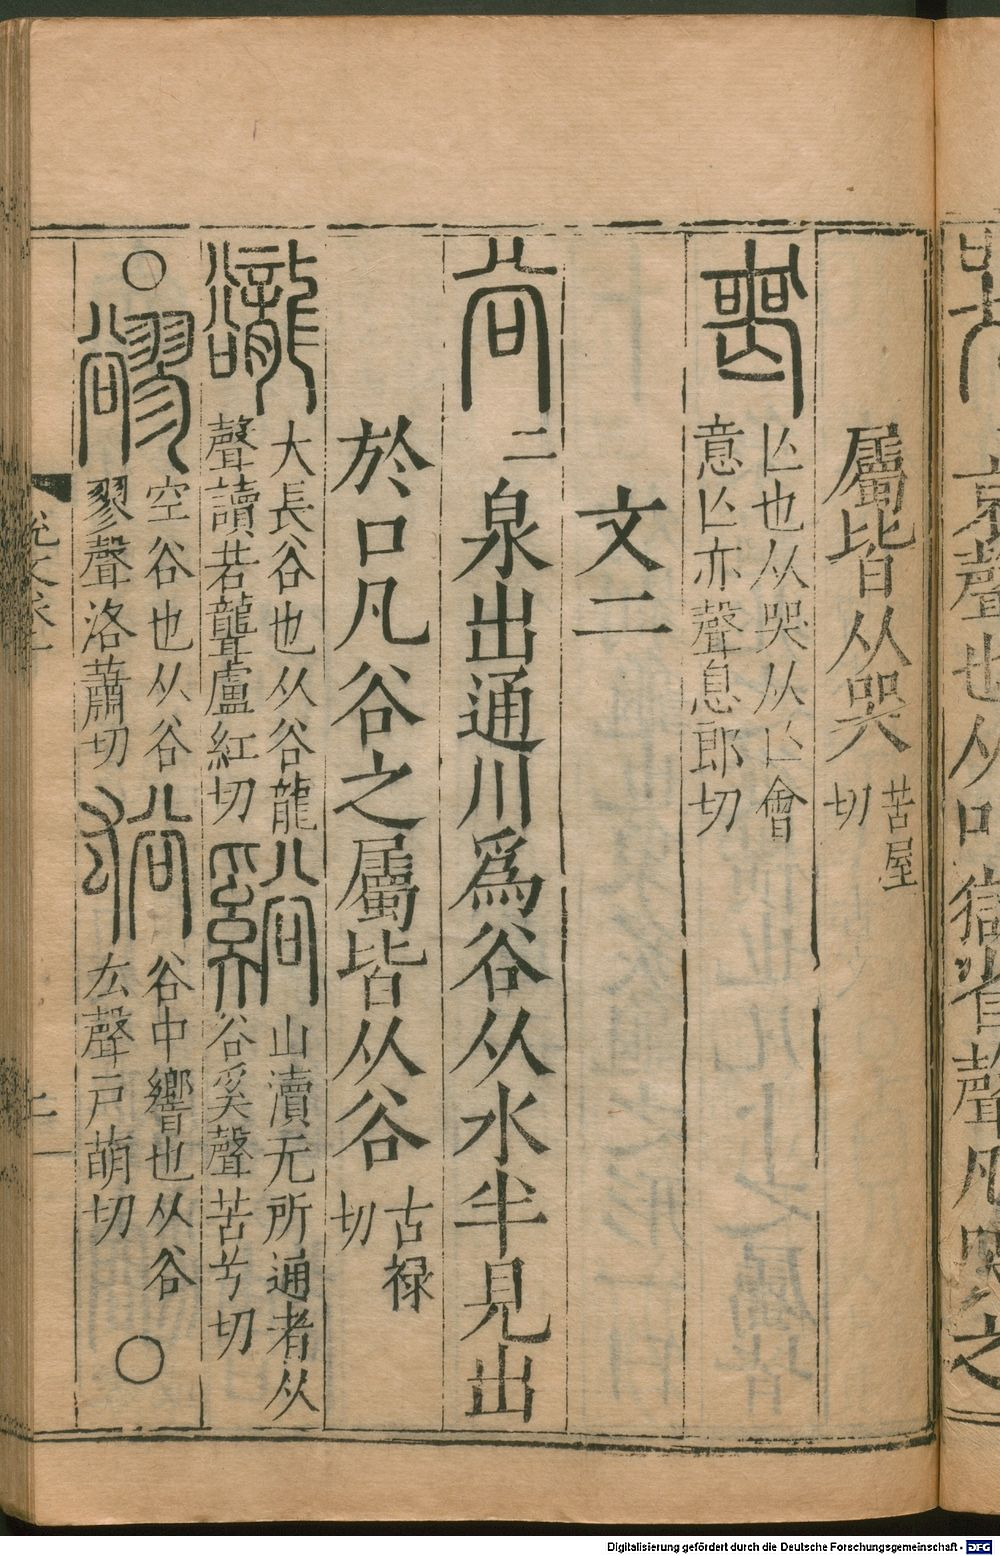 哀聲也从吅獄省聲凡哭之
屬皆从哭苦屋切
喪亾也从哭从亾會意亾亦聲息郎切
文二
谷二泉出通川爲谷从水半見出
於口凡谷之屬皆从谷古禄切
豅大長谷也从谷龍聲讀若聾盧紅切谿山瀆无所通者从谷奚聲苦兮切
○豂空谷也从谷翏聲洛蕭切谹谷中響也从谷厷聲戸萌切○
Digitalisierung gefördert durch die Deutsche Forschungsgemeinschaft - DFG